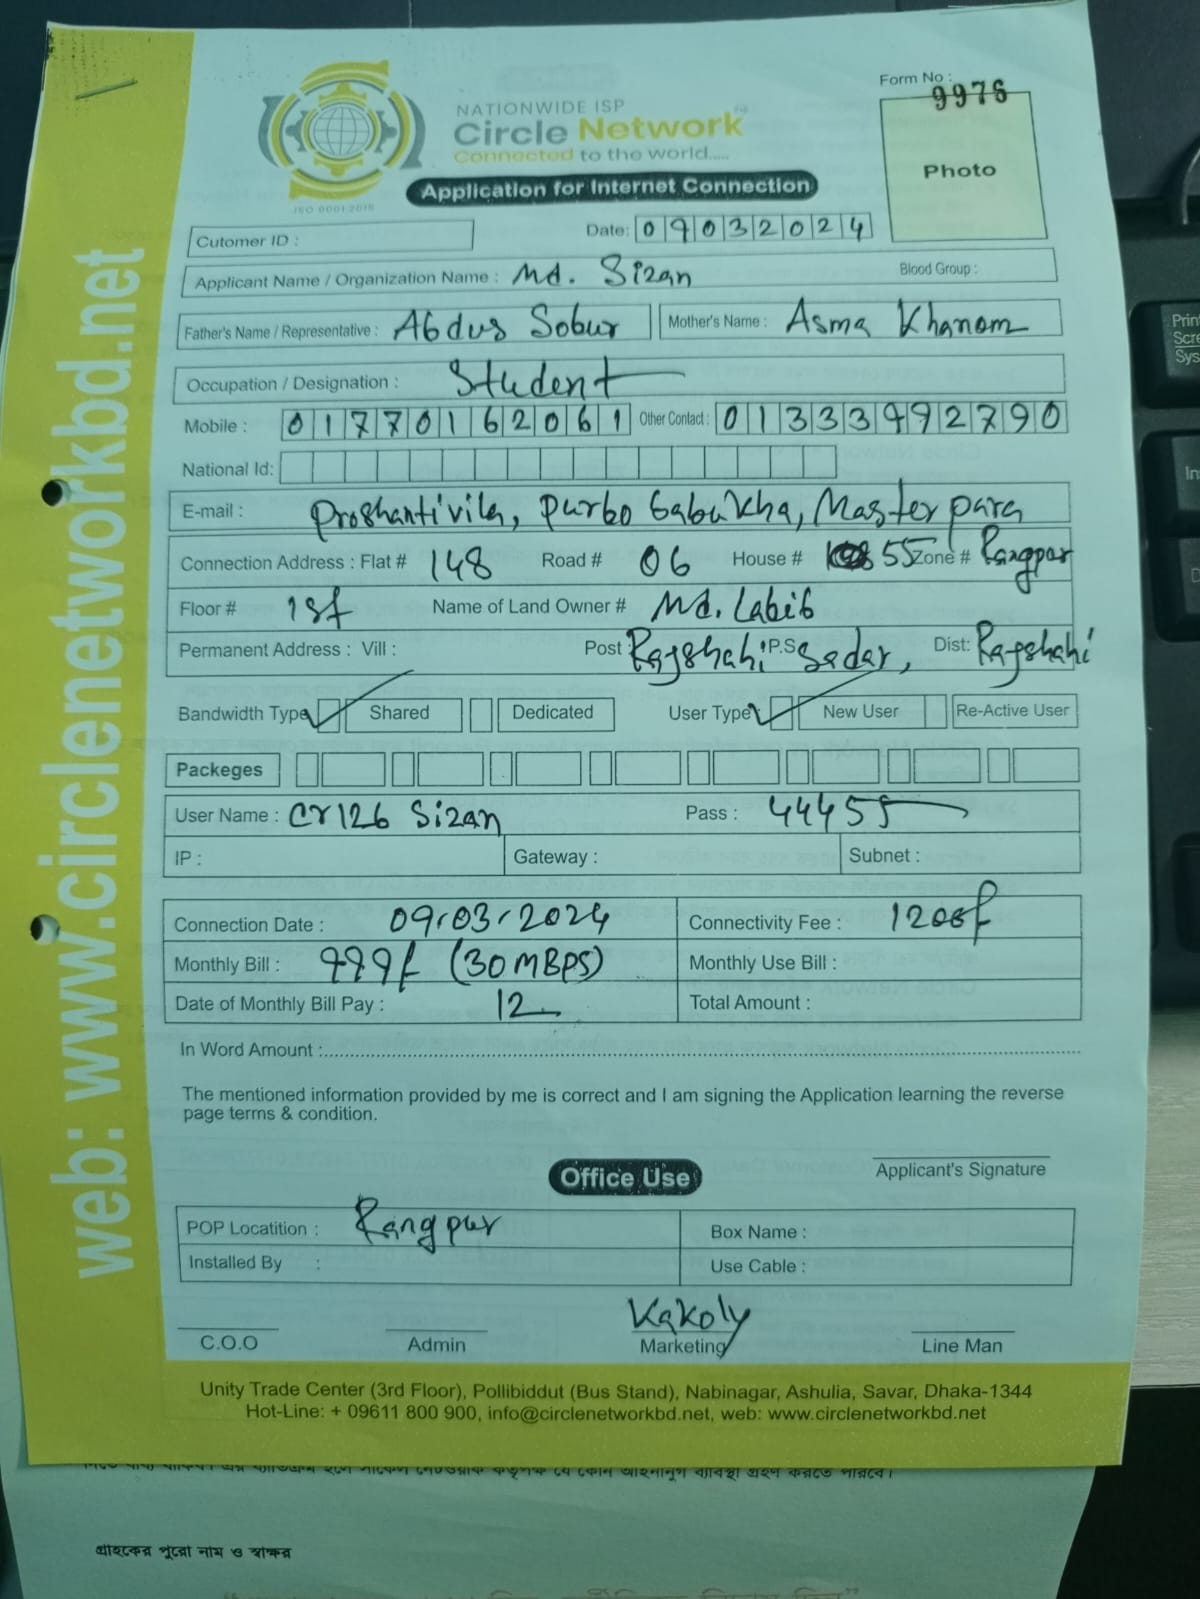 Form No :
9976
NATIONWIDE ISP
Circle Network
Connected to the world.....
ISO 9001:2015
Application for Internet Connection
Photo
Cutomer ID :
Date: 09032024
Applicant Name / Organization Name : Md. Sizan Blood Group :
Father's Name / Representative : Abdus Sobur Mother's Name : Asma Khanom
Occupation / Designation : Student
Mobile : 01770162061 Other Contact : 01333992790
National Id:
E-mail : Proshantivila, Purbo Gabukha, Master para
Connection Address : Flat # 148 Road # 06 House # 55 Zone # Rangpur
Floor # 1st Name of Land Owner # Md. Labib
Permanent Address : Vill : Post Rajshahi P.S Sadar, Dist: Rajshahi
Bandwidth Type Shared Dedicated User Type New User Re-Active User
Packeges
User Name : cr126 Sizan Pass : 44455
IP : Gateway : Subnet :
Connection Date : 09.03.2024 Connectivity Fee : 1200/-
Monthly Bill : 999/- (30MBPS) Monthly Use Bill :
Date of Monthly Bill Pay : 12 Total Amount :
In Word Amount :
The mentioned information provided by me is correct and I am signing the Application learning the reverse
page terms & condition.
Applicant's Signature
Office Use
POP Locatition : Rangpur Box Name :
Installed By : Use Cable :
Kakoly
C.O.O Admin Marketing Line Man
Unity Trade Center (3rd Floor), Pollibiddut (Bus Stand), Nabinagar, Ashulia, Savar, Dhaka-1344
Hot-Line: + 09611 800 900, info@circlenetworkbd.net, web: www.circlenetworkbd.net
web: www.circlenetworkbd.net
গ্রাহকের পুরো নাম ও স্বাক্ষর
Print
Scre
Sys
In